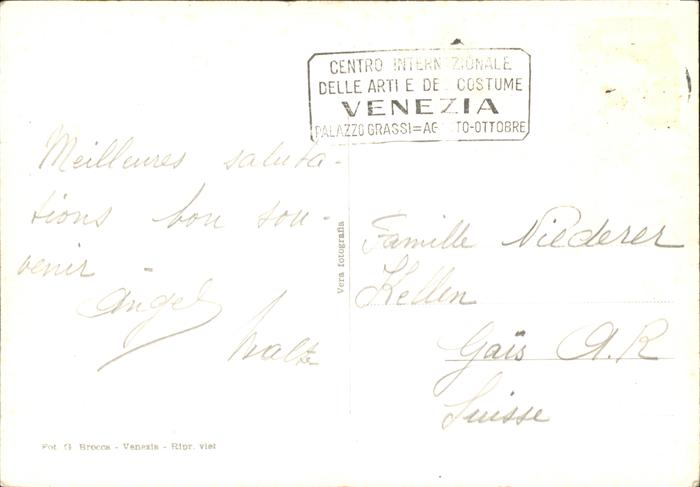 CENTRO INTERNAZIONALE
DELLE ARTI E DEL COSTUME
VENEZIA
PALAZZO GRASSI=AGOSTO-OTTOBRE
Meilleures saluta-
tions bon sou-
venir
Angel
Vera fotografia
Famille Niederer
Kellen
Gais A.R
Suisse
Fot. G. Brocca - Venezia - Ripr. viet